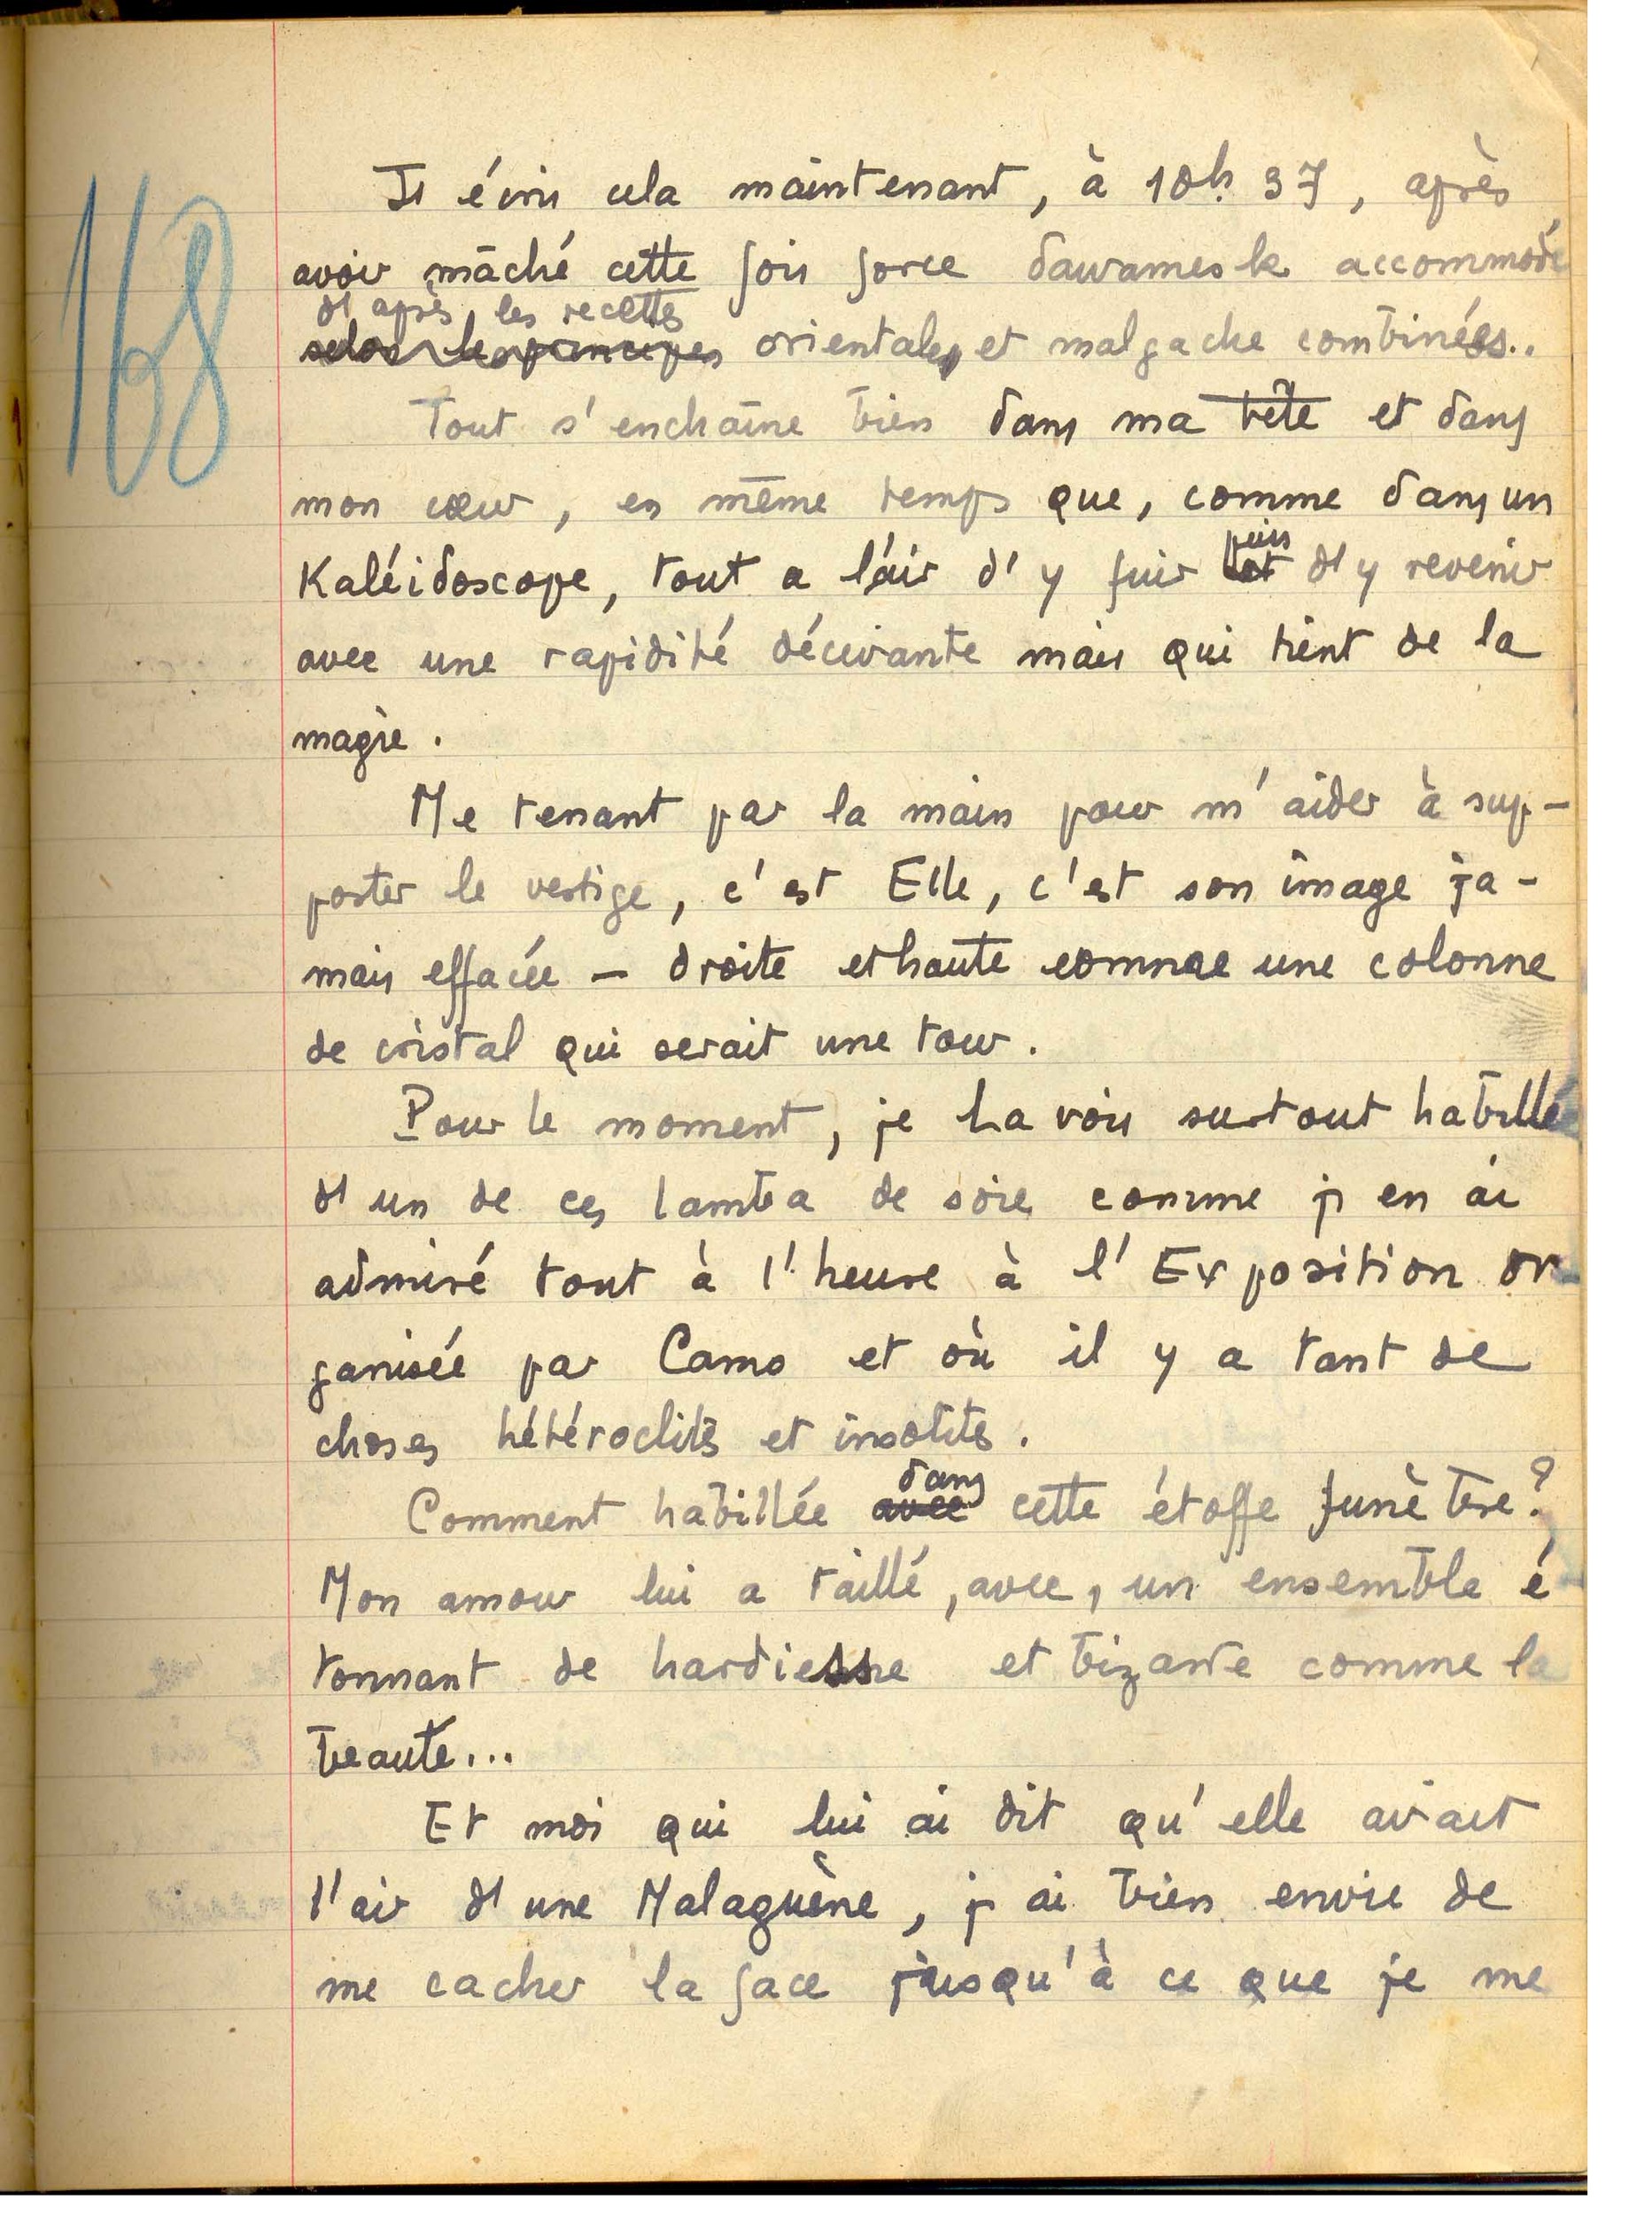 168
J'écris cela maintenant, à 10h. 37, après
avoir mâché cette fois force dawamesk accommodé
d'après les recettes
selon les principes orientales et malgache combinées..
Tout s'enchaîne bien dans ma tête et dans
mon cœur, en même temps que, comme dans un
Kaléidoscope, tout a l'air d'y fuir puis d'y revenir
avec une rapidité décevante mais qui tient de la
magie.
Me tenant par la main pour m'aider à sup-
porter le vertige, c'est Elle, c'est son image ja-
mais effacée — droite et haute comme une colonne
de cristal qui serait une tour.
Pour le moment, je La vois surtout habillée
d'un de ces lamba de soie comme j'en ai
admiré tout à l'heure à l'Exposition or-
ganisée par Camo et où il y a tant de
choses hétéroclites et insolites.
Comment habillée avec dans cette étoffe funèbre?
Mon amour lui a taillé, avec, un ensemble é
tonnant de hardiesse et bizarre comme la
beauté...
Et moi qui lui ai dit qu'elle avait
l'air d'une Malaguène, j'ai bien envie de
me cacher la face jusqu'à ce que je me